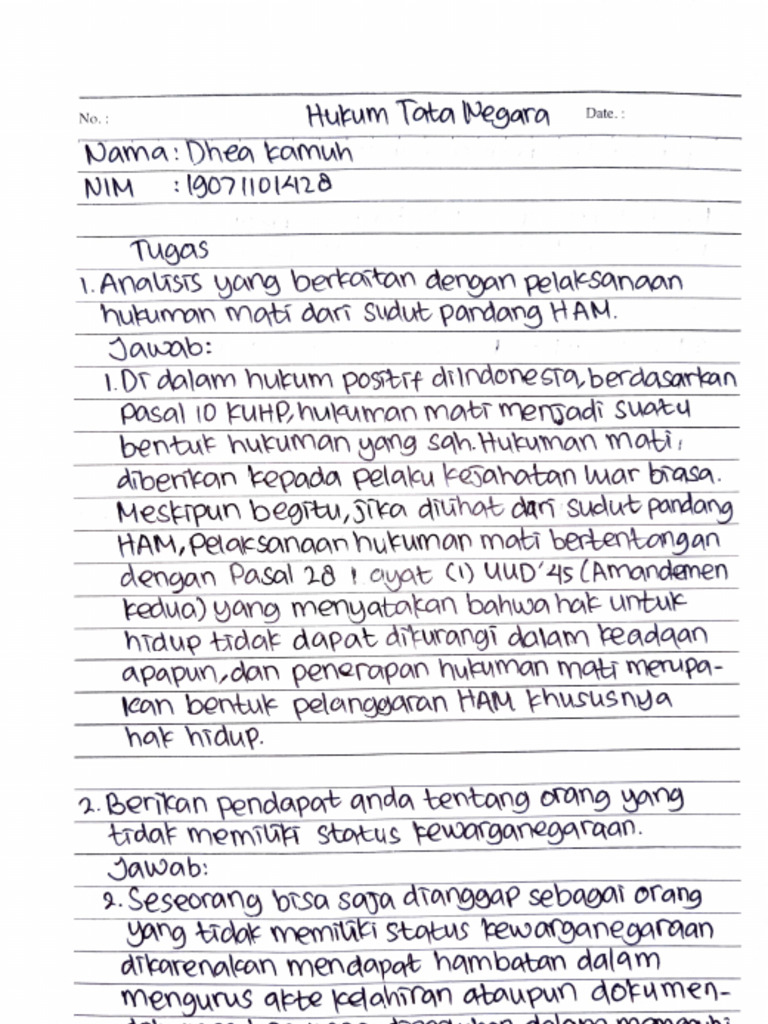 No. :
Hukum Tata Negara
Date. :
Nama : Dhea Kamuh
NIM : 190711014128
Tugas
1. Analisis yang berkaitan dengan pelaksanaan
hukuman mati dari sudut pandang HAM.
Jawab:
1. Di dalam hukum positif diIndonesia, berdasarkan
Pasal 10 KUHP, hukuman mati menjadi suatu
bentuk hukuman yang sah. Hukuman mati,
diberikan kepada pelaku kejahatan luar biasa.
Meskipun begitu, jika dilihat dari sudut pandang
HAM, pelaksanaan hukuman mati bertentangan
dengan Pasal 28 I ayat (1) UUD'45 (Amandemen
kedua) yang menyatakan bahwa hak untuk
hidup tidak dapat dikurangi dalam keadaan
apapun, dan penerapan hukuman mati merupa-
kan bentuk pelanggaran HAM khususnya
hak hidup.
2. Berikan pendapat anda tentang orang yang
tidak memiliki status kewarganegaraan.
Jawab:
2. Seseorang bisa saja dianggap sebagai orang
yang tidak memiliki status kewarganegaraan
dikarenakan mendapat hambatan dalam
mengurus akte kelahiran ataupun dokumen-